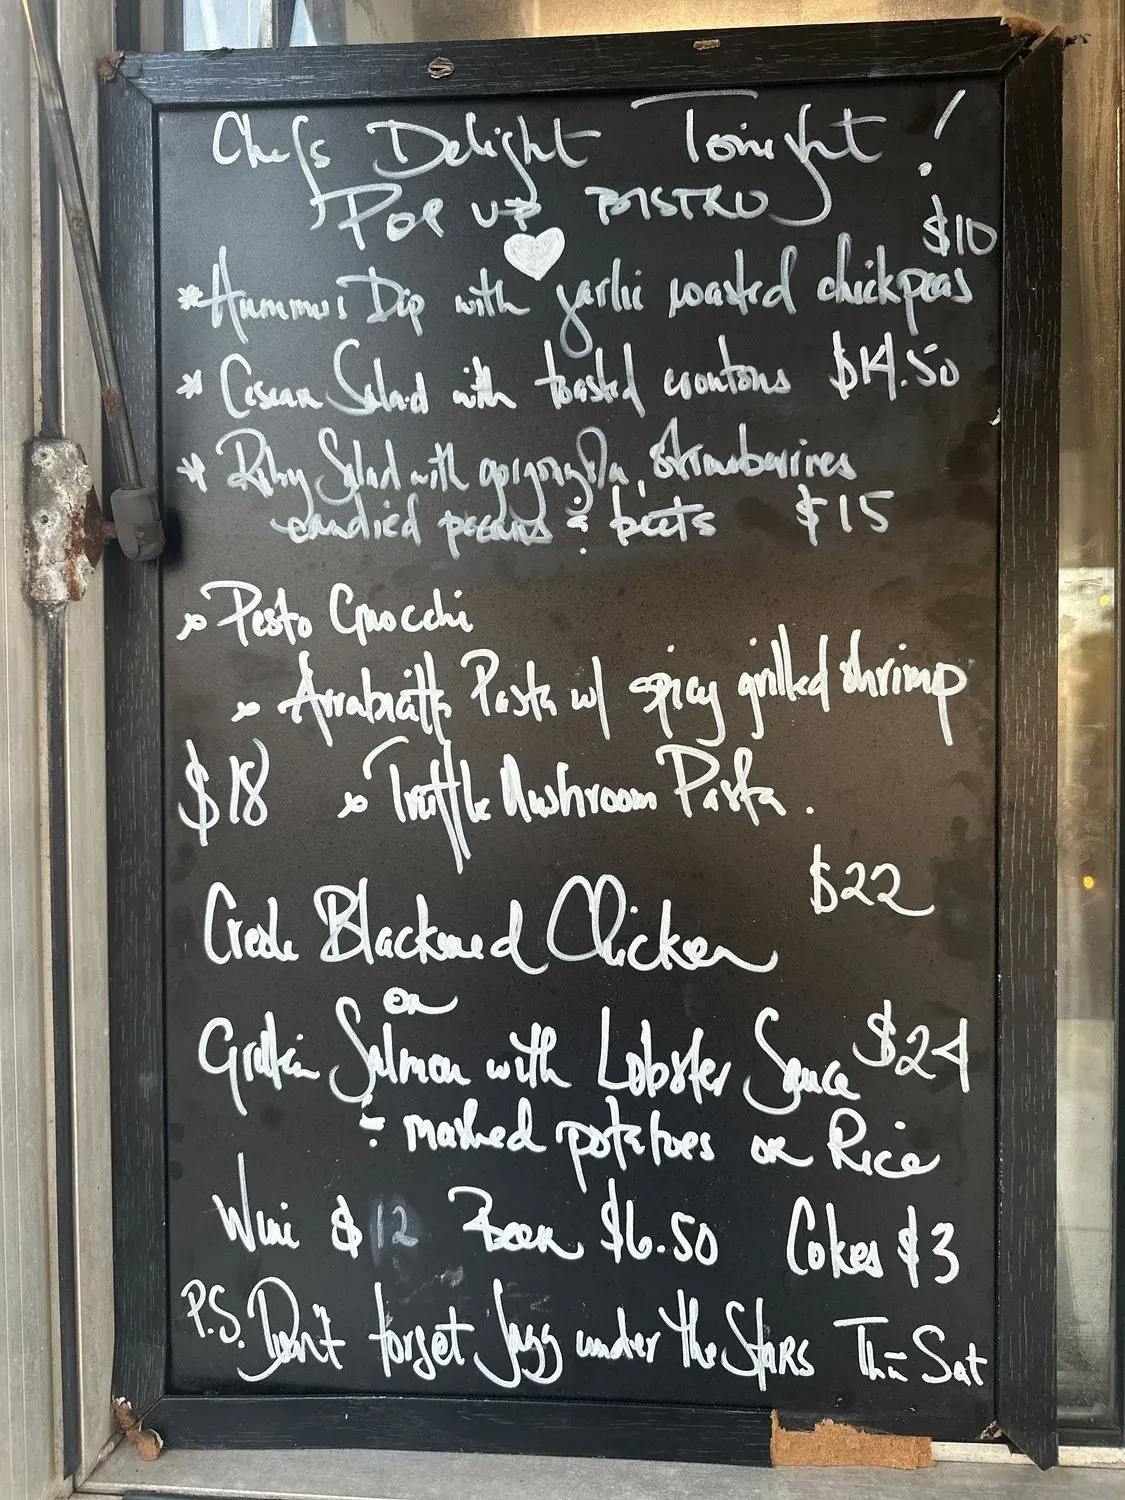 Chefs Delight Tonight!
POP UP BISTRO
$10
*Hummus Dip with garlic roasted chickpeas
* Cesear Salad with toasted croutons $14.50
* Ruby Salad with gorgonzola, strawberries
candied pecans & beets $15
Pesto Gnocchi
Arrabiatta Pasta w/ spicy grilled shrimp
$18 Truffle Mushroom Pasta.
$22
Creole Blackened Chicken
OR
Salmon with Lobster Sauce $24
& mashed potatoes or Rice
$12 Beer $6.50 Cokes $3
P.S. Don't forget Jazz under the Stars Sat